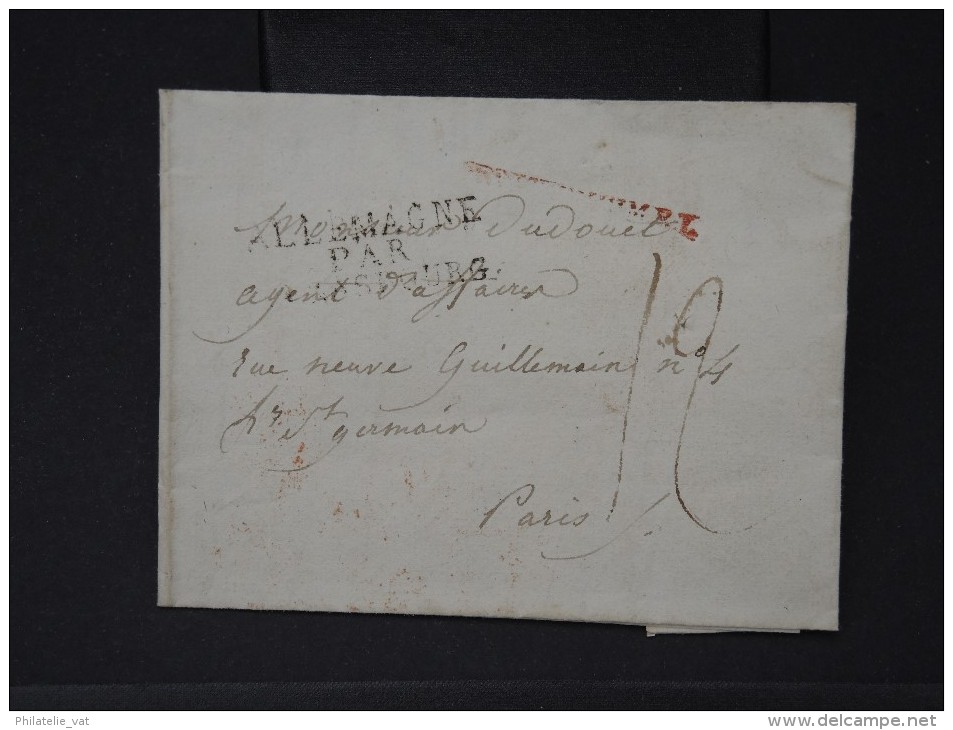 ALLEMAGNE
PAR
Monsieur Dudouet
agent d'affaires
rue neuve Guillemain n° 4
St germain
Paris
12
Philatelie_vat
www.delcampe.net